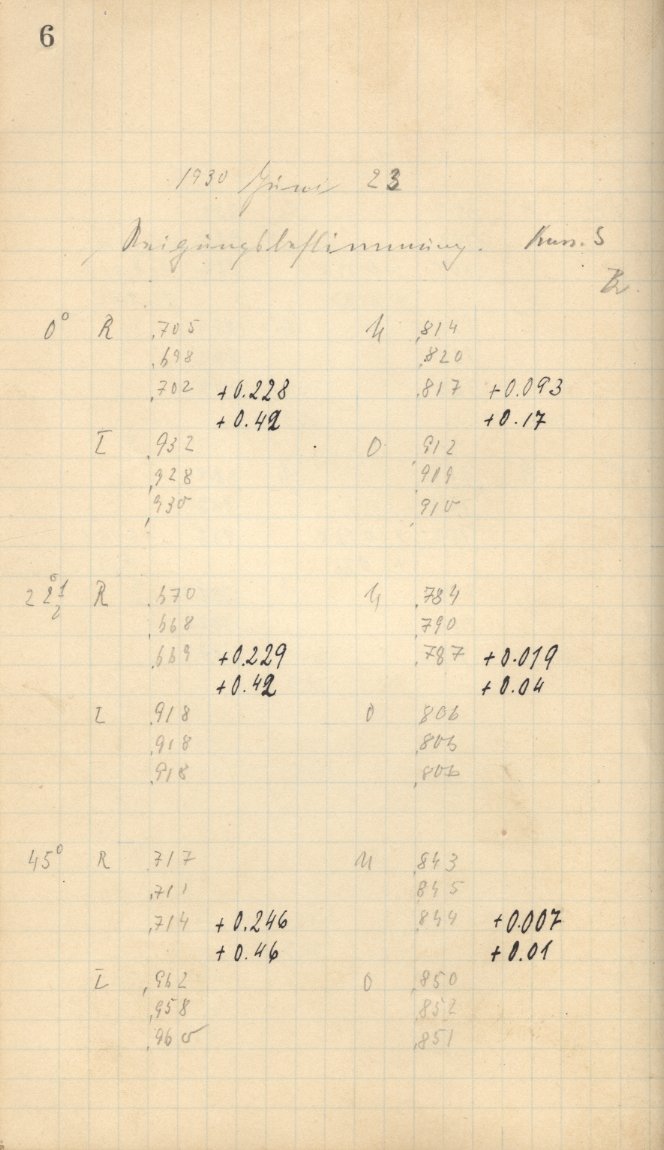 6
1930 Juni 23
Neigungsbestimmung.
0° R ,705 U ,814
,698 ,820
,702 +0.228 ,817 +0.093
+0.42 +0.17
L ,932 O ,912
,928 ,909
,930 ,910
22 1/2° R ,670 U ,784
,668 ,790
,669 +0.229 ,787 +0.019
+0.42 +0.04
L ,918 O ,806
,918 ,805
,918 ,806
45° R ,717 U ,843
,711 ,845
,714 +0.246 ,844 +0.007
+0.46 +0.01
L ,962 O ,850
,958 ,852
,960 ,851